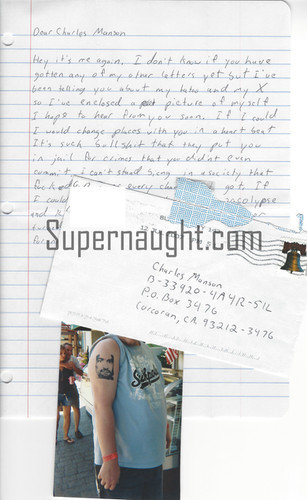 Dear Charles Manson
Hey it's me again, I don't know if you have
gotten any of my other letters yet but I've
been telling you about my tatoo and my X
so I've enclosed a picture of myself
I hope to hear from you soon. If I could
I would change places with you in a heart beat
It's such bullshit that they put you
in jail for crimes that you didn't even
commit, I can't stand being in a society that
every chance got. If
I could apocalypse
Supernaught.com
Charles Manson
B-33920-4A4R-51L
P.O. Box 3476
Corcoran, CA 93212-3476